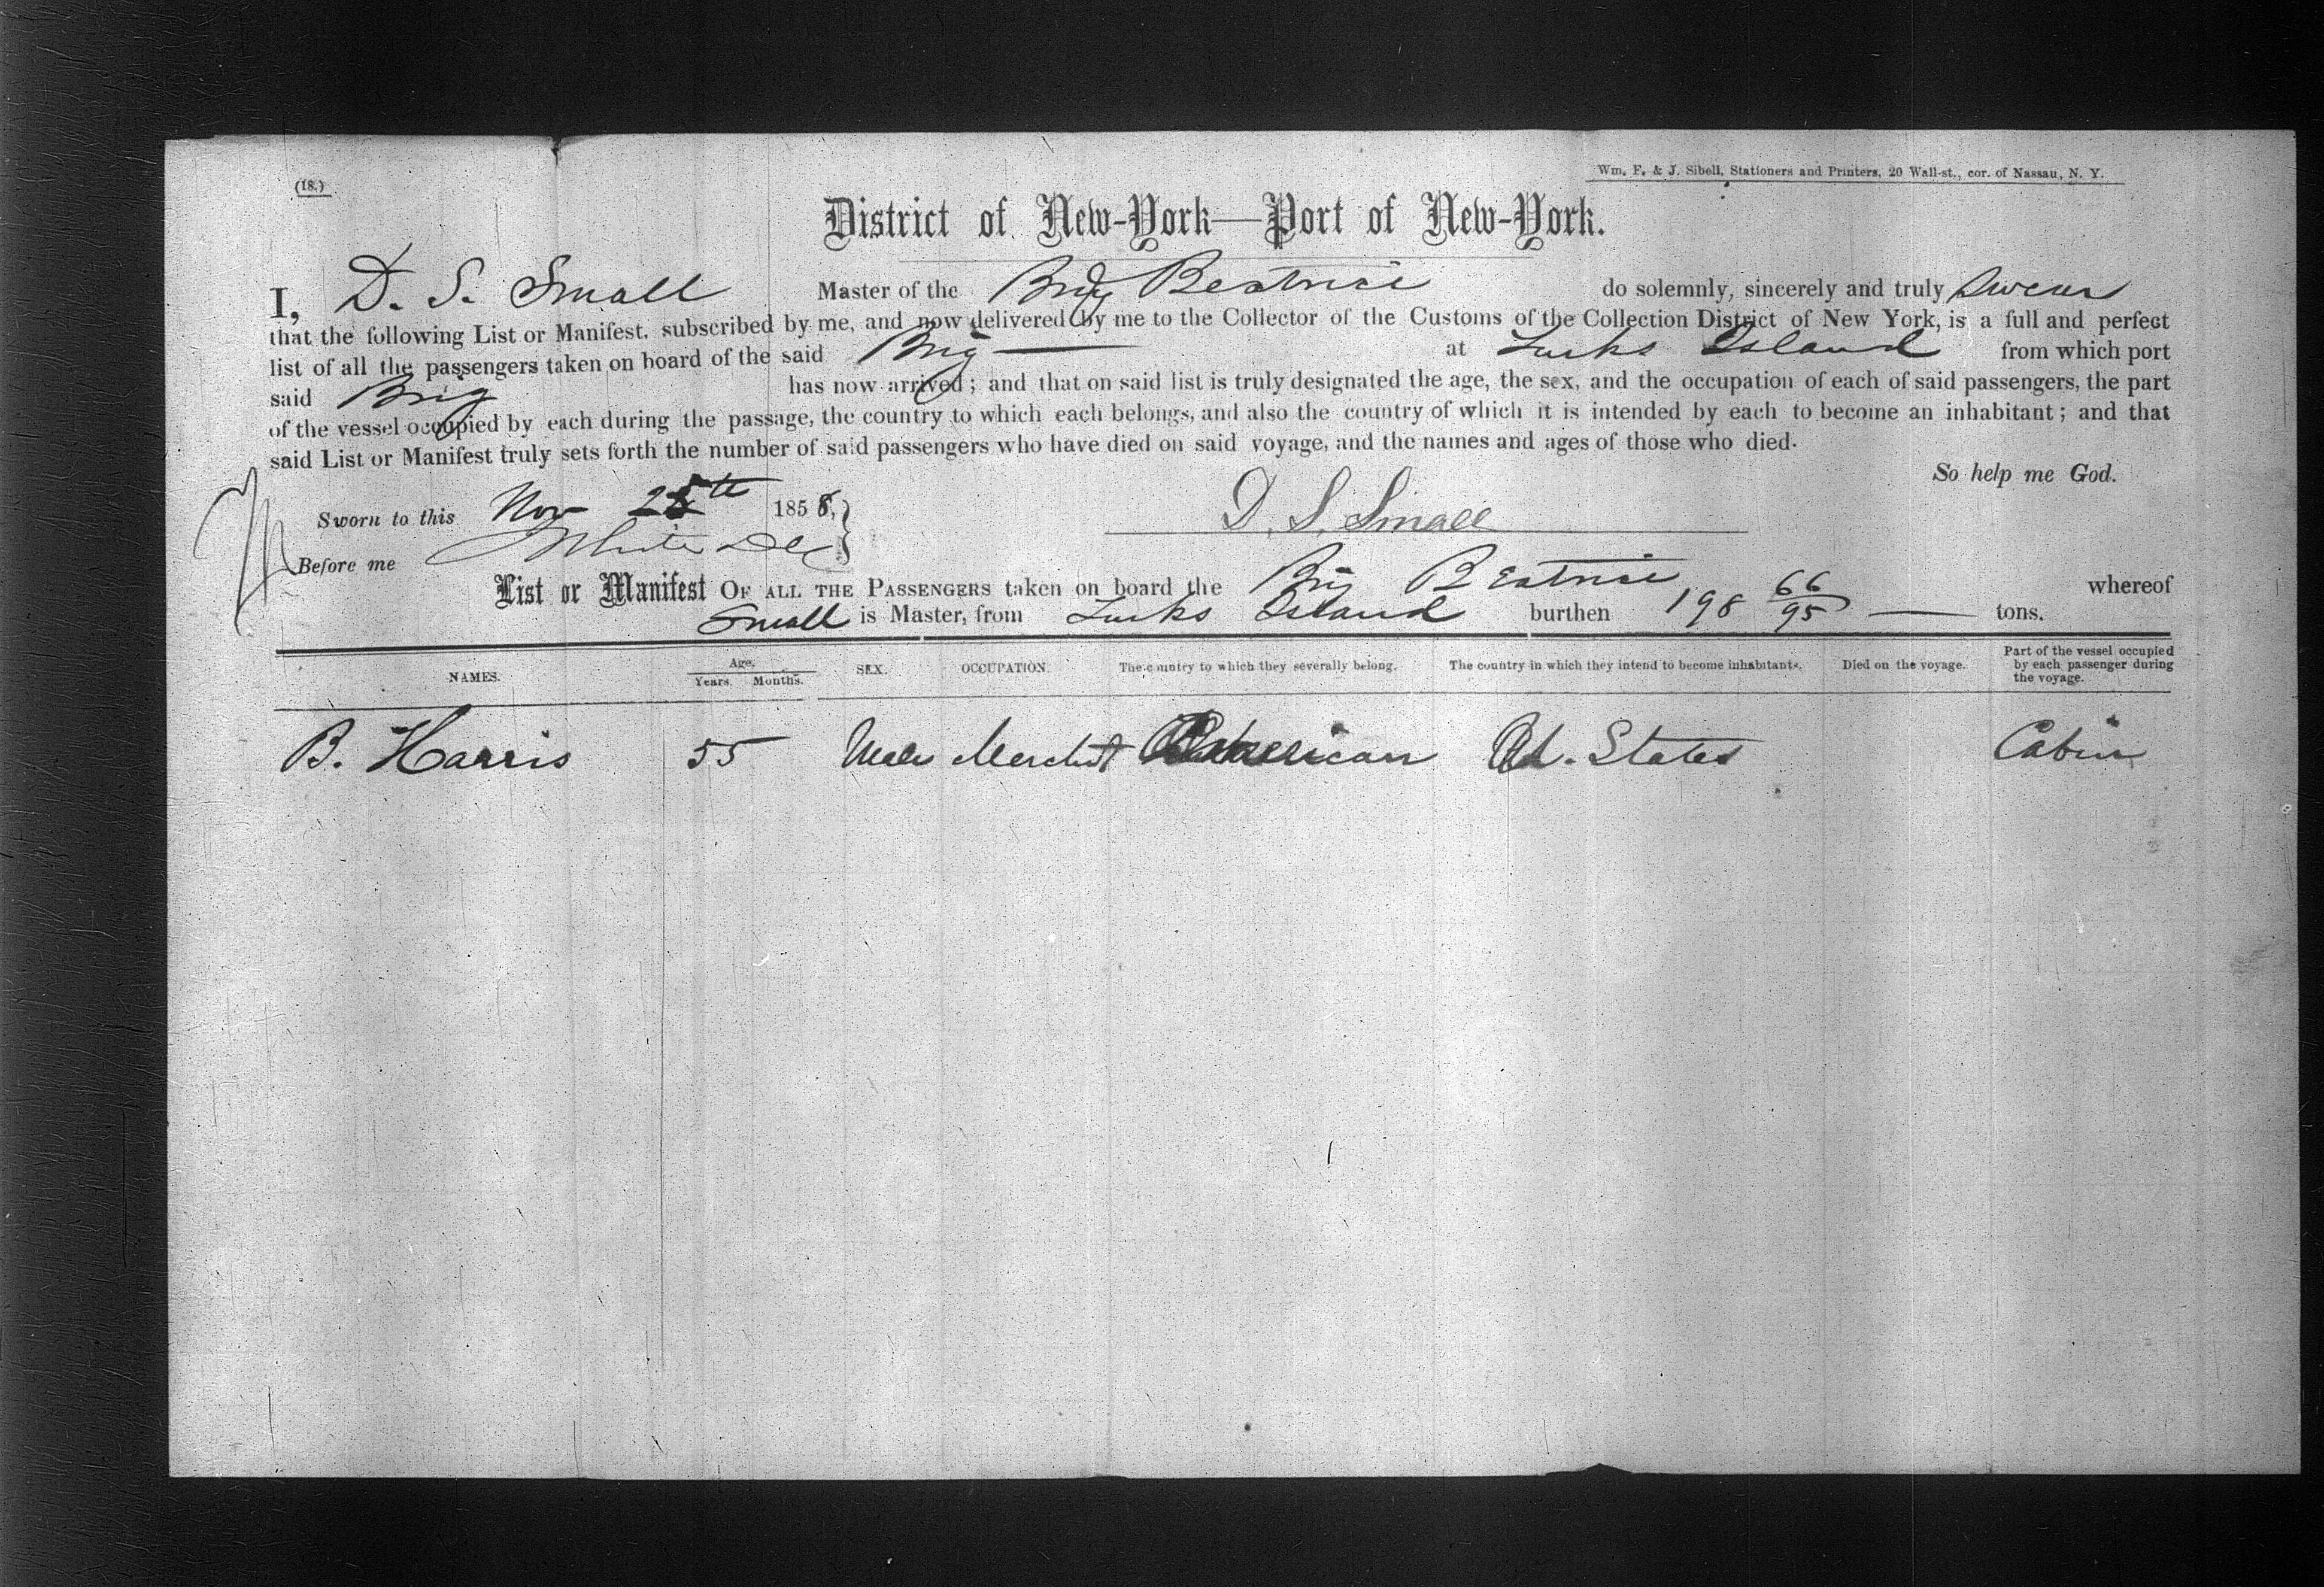 (18.)
Wm. F. & J. Sibell, Stationers and Printers, 20 Wall-st., cor. of Nassau, N. Y.
District of New-York—Port of New-York.
I, D. S. Small Master of the Brig Beatrice do solemnly, sincerely and truly Swear
that the following List or Manifest, subscribed by me, and now delivered by me to the Collector of the Customs of the Collection District of New York, is a full and perfect
list of all the passengers taken on board of the said Brig at Turks Island from which port
said Brig has now arrived; and that on said list is truly designated the age, the sex, and the occupation of each of said passengers, the part
of the vessel occupied by each during the passage, the country to which each belongs, and also the country of which it is intended by each to become an inhabitant; and that
said List or Manifest truly sets forth the number of said passengers who have died on said voyage, and the names and ages of those who died.
So help me God.
Sworn to this Nov th 1858,
D. S. Small
Before me
List or Manifest OF ALL THE PASSENGERS taken on board the Brig Beatrice whereof
Small is Master, from Turks Island burthen 198 66/95 tons.
NAMES. Age. Years. Months. SEX. OCCUPATION. The country to which they severally belong. The country in which they intend to become inhabitants. Died on the voyage. Part of the vessel occupied by each passenger during the voyage.
B. Harris 55 Male Merchst American Ud. States Cabin